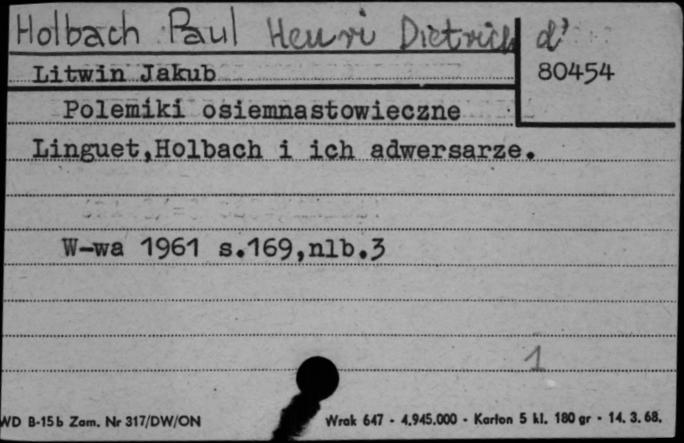 Holbach Paul Henri Dietrich d'
Litwin Jakub
80454
Polemiki osiemnastowieczne
Linguet,Holbach i ich adwersarze.
W-wa 1961 s.169,nlb.3
1
WD B-15b Zam. Nr 317/DW/ON
Wrak 647 - 4.945.000 - Karton 5 kl. 180 gr - 14. 3. 68.